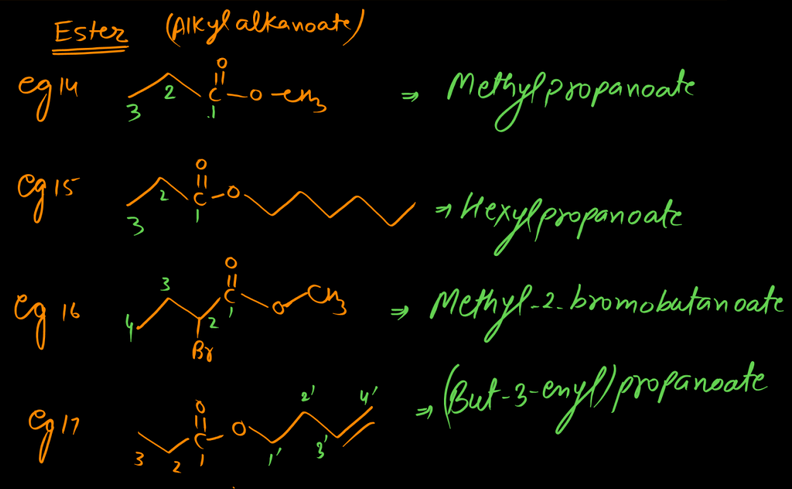 Ester (Alkyl alkanoate)
eg 14
O
3 2 C - O - CH3
1
⇒ Methylpropanoate
eg 15
O
3 2 C - O
1
⇒ Hexylpropanoate
eg 16
O
4 3 2 C O CH3
1
Br
⇒ Methyl-2-bromobutanoate
eg 17
O
3 2 C - O 1' 2' 3' 4'
1
⇒ (But-3-enyl)propanoate